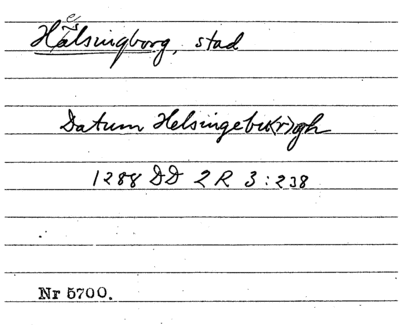 Hälsingborg, stad
Datum Helsingebu(r)gh
1288 DD 2 R 3:238
Nr 5700.